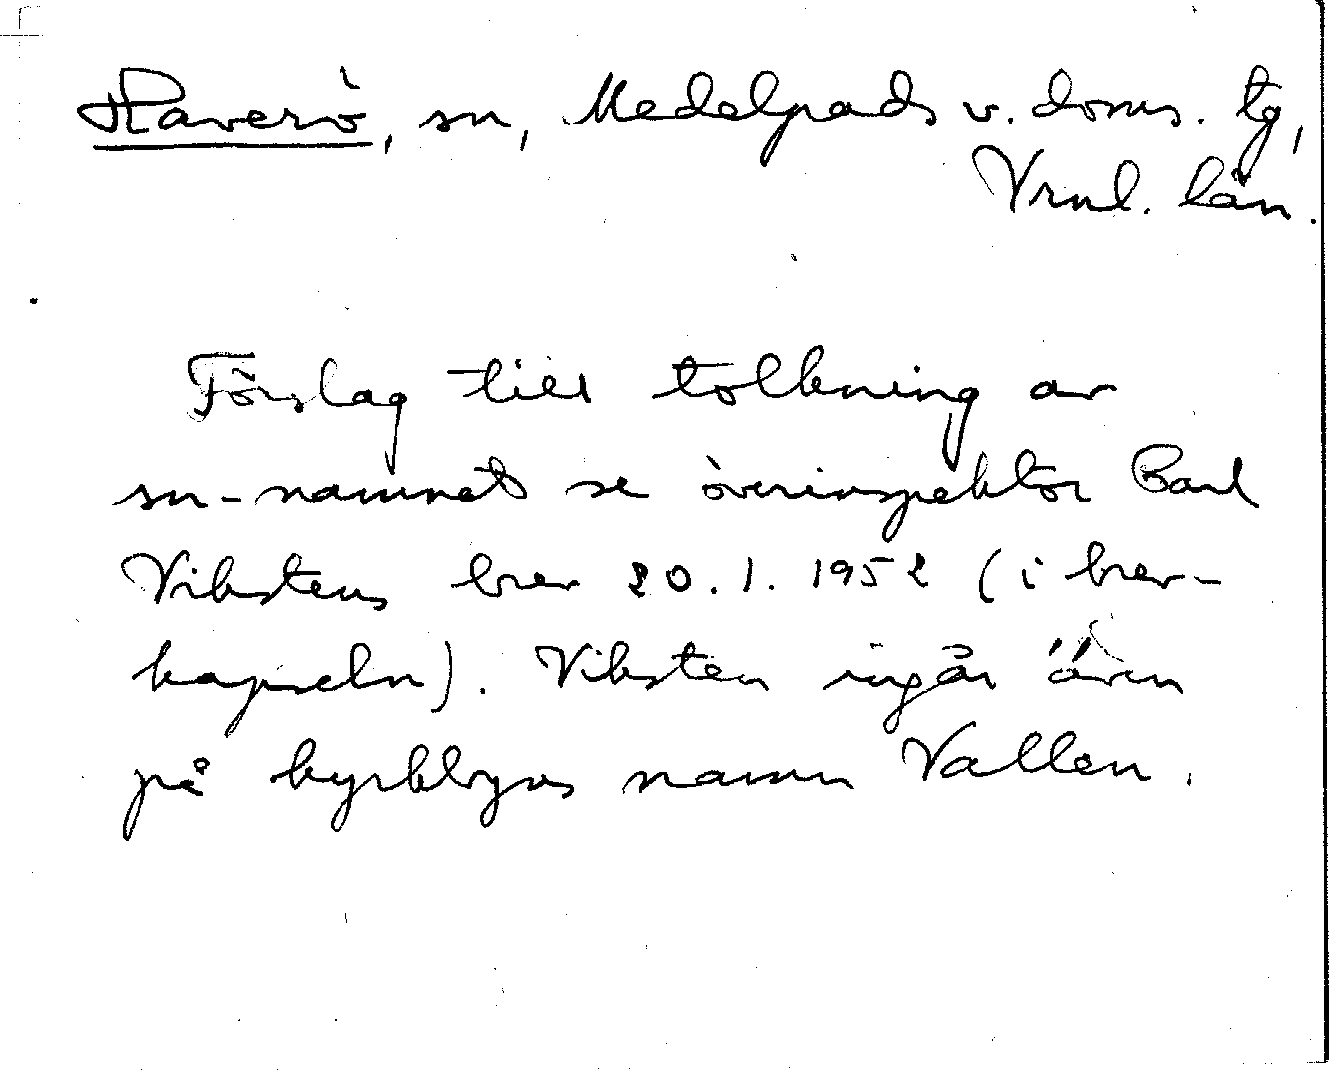 Haverö, sn, Medelpads v. doms. tg,
Vrnl. län.
Förslag till tolkning av
sn-namnet se överinspektor Carl
Vibstens brev 20.1.1952 (i brev-
kapseln). Vibsten ingår även
på kyrkbyns namn Vallen.